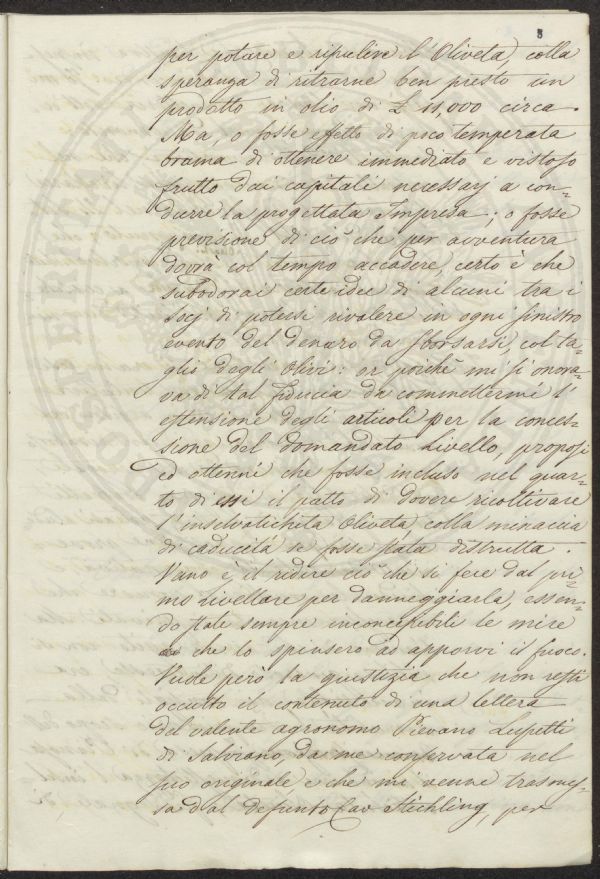 3
per potare e ripulire l'Oliveta, colla
speranza di ritrarne ben presto un
prodotto in olio di £ 11,000 circa.
Ma, o fosse effetto di poco temperata
brama di ottenere immediato e vistoso
frutto dai capitali necessarj a con=
durre la progettata Impresa; o fosse
previsione di ciò che per avventura
dovrà col tempo accadere, certo è che
subodorai certe idee di alcuni tra i
socj di potersi rivalere in ogni sinistro
evento del denaro da sborsarsi, col ta=
glio degli Olivi: or poichè mi si onora=
va di tal fiducia da commettermi l'
estensione degli articoli per la conces=
sione del domandato Livello, proposi
ed ottenni che fosse incluso nel quar=
to di essi il patto di dovere ricoltivare
l'inselvatichita Oliveta colla minaccia
di caducità se fosse stata distrutta.
Vano è il ridire ciò che si fece dal pri=
mo Livellare per danneggiarla, essen=
do state sempre inconcepibili le mire
che lo spinsero ad apporvi il fuoco.
Vuole però la giustizia che non resti
occulto il contenuto di una lettera
del valente agronomo Pievano Lupetti
di Salviano, da me conservata nel
suo originale, e che mi venne trasmes=
sa dal defunto Cav Stichling, per
PROSPERITA